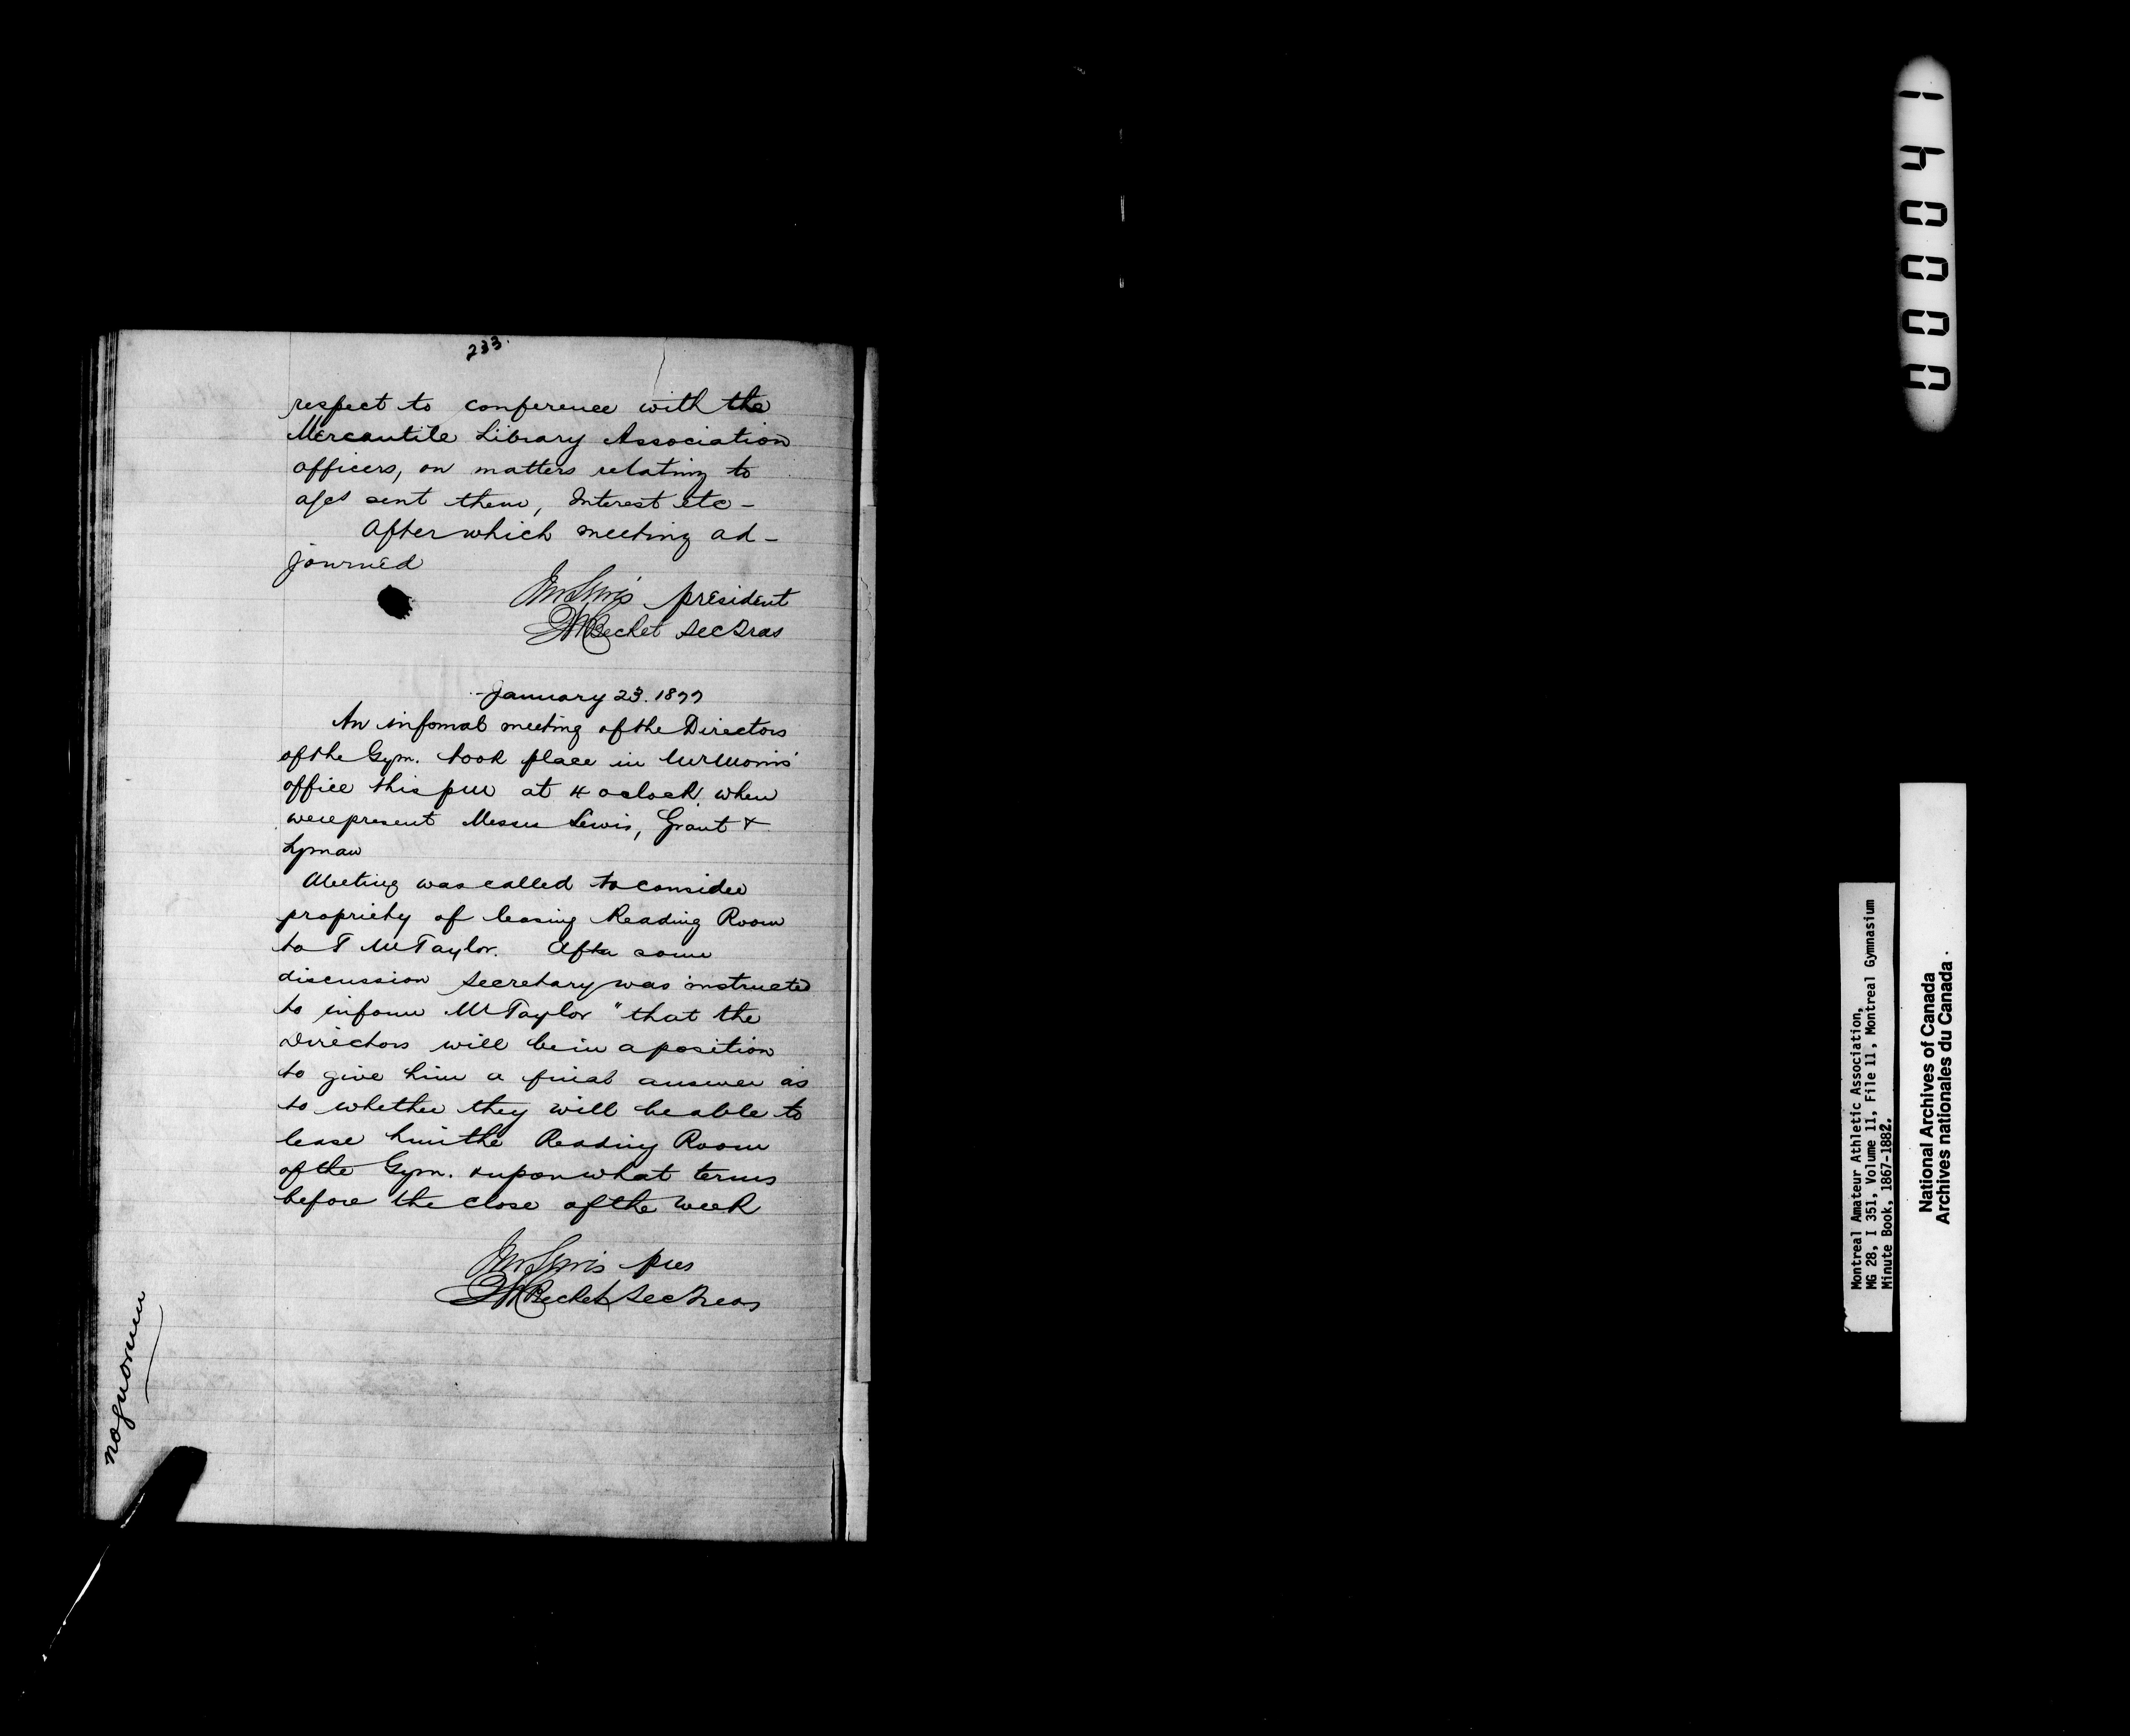 233.
respect to conference with the
Mercantile Library Association
officers, on matters relating to
a/cs sent them, Interest etc -
After which meeting ad -
journed
president
Becket Sec Tras
January 23. 1877
An infomal meeting of the Directors
of the Gym. took place in Mr Morris'
office this pm at 4 oclock when
were present Messrs Lewis, Grant &
Lyman
Meeting was called to consider
propriety of leasing Reading Room
to T M Taylor. After some
discussion Secretary was instructed
to inform Mr Taylor "that the
Directors will be in a position
to give him a final answer as
to whether they will be able to
lease him the Reading Room
of the Gym. & upon what terms
before the close of the week
pres
Becket Sec Treas
no quorum
000041
Montreal Amateur Athletic Association,
MG 28, I 351, Volume 11, File 11, Montreal Gymnasium
Minute Book, 1867-1882.
National Archives of Canada
Archives nationales du Canada